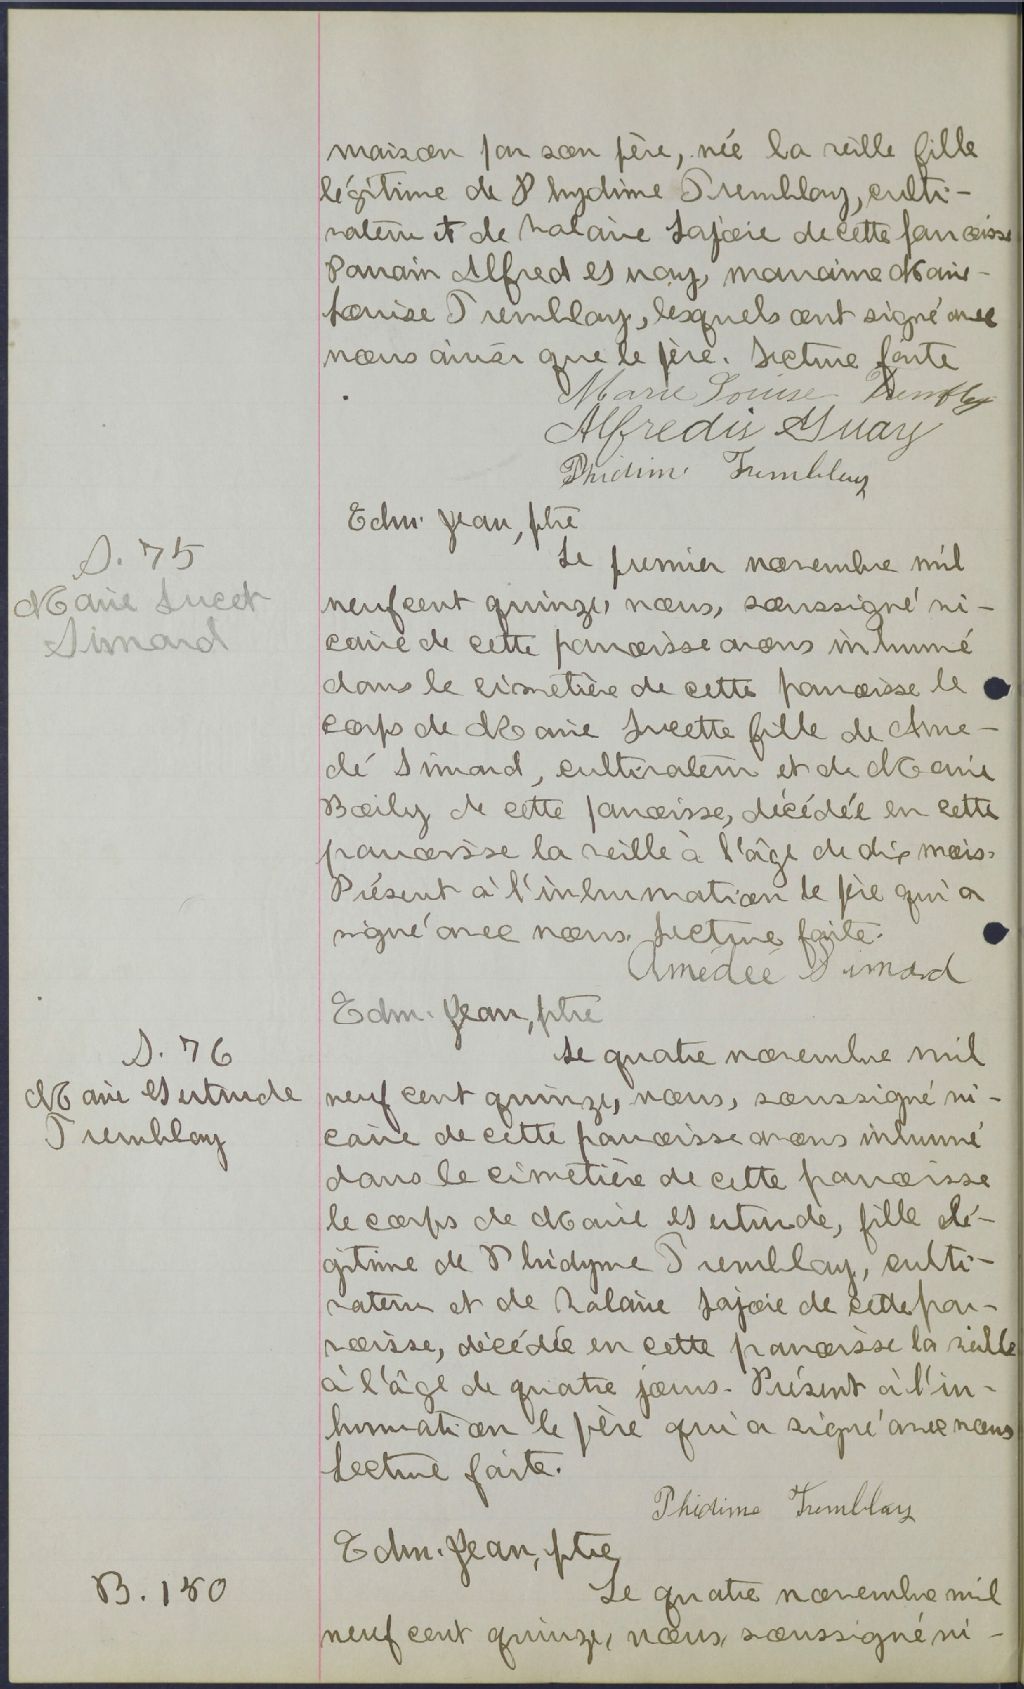 maison par son père, née la veille fille
légitime de Phydime Tremblay, culti-
vateur et de Lajoie de cette paroisse
Parrain Alfred Guay, marraine Marie-
Louise Tremblay, lesquels ont signé avec
nous ainsi que le père. Lecture faite
Marie Louise Trembly
Alfredis Guay
Phidime Tremblay
Edm. Jean, ptre
S. 75
Marie Lucet
Simard
Le premier novembre mil
neuf cent quinze, nous, soussigné vi-
caire de cette paroisse avons inhumé
dans le cimetière de cette paroisse le
corps de Marie Lucette fille de Amé-
dé Simard, cultivateur et de Marie
Boily de cette paroisse, décédée en cette
paroisse la veille à l'âge de dix mois.
Présent à l'inhumation le père qui a
signé avec nous. Lecture faite.
Amédéé Simard
Edm. Jean, ptre
S. 76
Marie Gertrude
Tremblay
Le quatre novembre mil
neuf cent quinze, nous, soussigné vi-
caire de cette paroisse avons inhumé
dans le cimetière de cette paroisse
le corps de Marie Gertrude, fille lé-
gitime de Phidyme Tremblay, culti-
vateur et de Lajoie de cette par-
roisse, décédée en cette paroisse la veille
à l'âge de quatre jours. Présent à l'in-
humation le père qui a signé avec nous
Lecture faite.
Phidime Tremblay
Edm. Jean, ptre
B. 150
Le quatre novembre mil
neuf cent quinze, nous, soussigné vi-